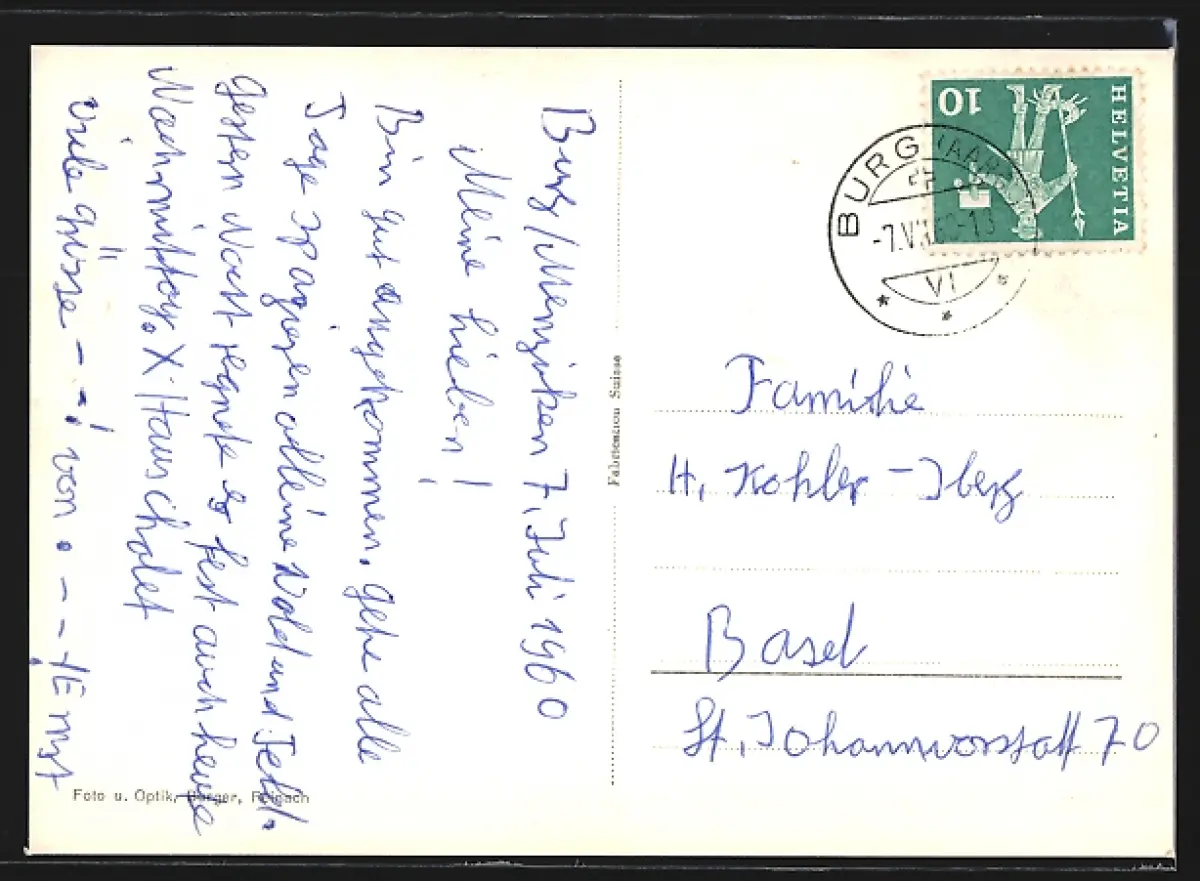 Burg/Menziken 7. Juli 1960
Meine Lieben!
Bin gut angekommen. Gehe alle
Tage spazieren alleine Wald und Feld.
Gestern Nacht regnete es fest auch heute
Nachmittag. X Haus chalet
viele Grüsse - - ! von . - - ! Ernst
Foto u. Optik, Burger, Reinach
Fabrication Suisse
HELVETIA
10
BURG (AARG)
-7.VII.60-18
VI
Familie
H. Kohler-Iberg
Basel
St. Johannvorstatt 70